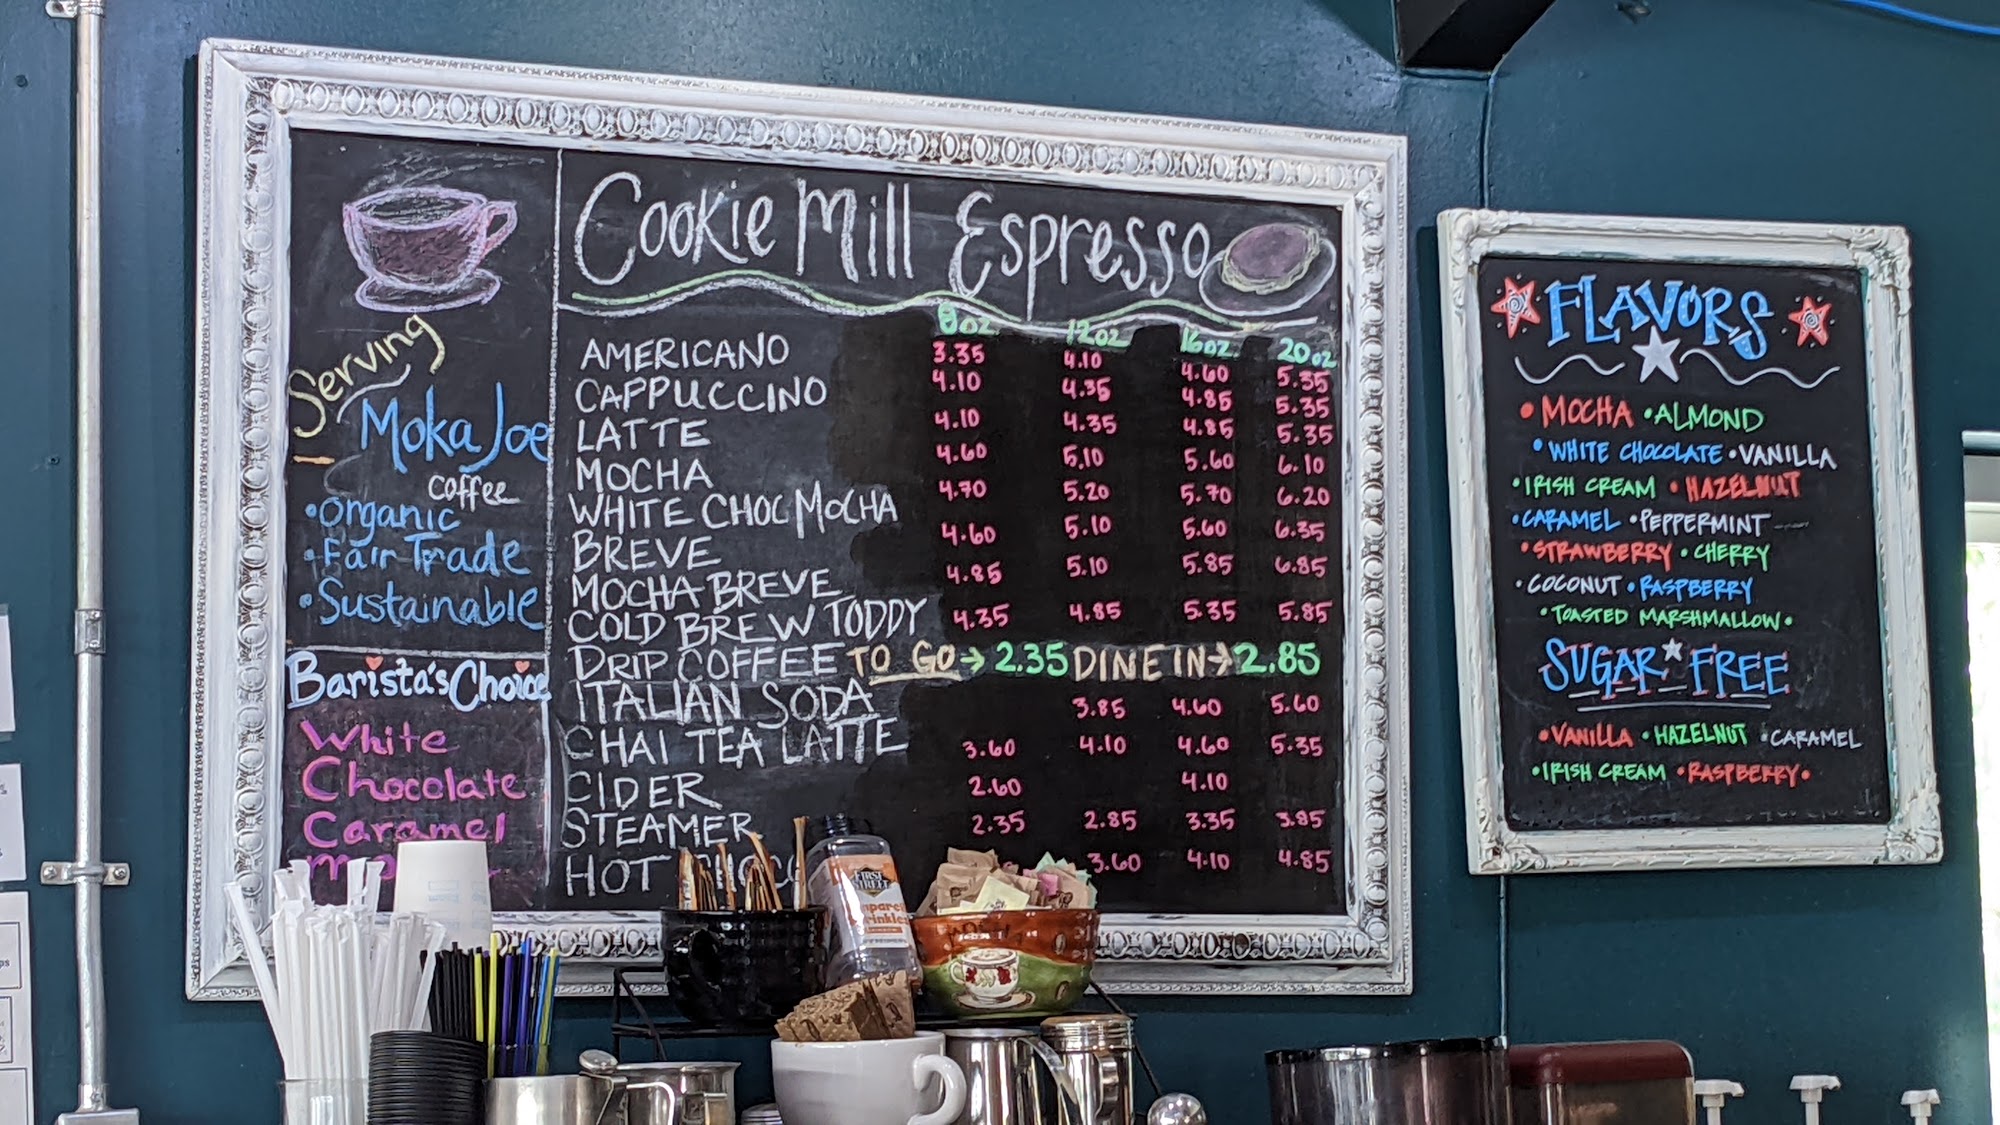 Serving
Moka Joe
coffee
• organic
• Fair Trade
• Sustainable
Barista's Choice
White
Chocolate
Caramel
Cookie Mill Espresso
8oz. 12oz 16oz. 20oz
AMERICANO 3.35 4.10 4.60 5.35
CAPPUCCINO 4.10 4.35 4.85 5.35
LATTE 4.10 4.35 4.85 5.35
MOCHA 4.60 5.10 5.60 6.10
WHITE CHOC MOCHA 4.70 5.20 5.70 6.20
BREVE 4.60 5.10 5.60 6.35
MOCHA BREVE 4.85 5.10 5.85 6.85
COLD BREW TODDY 4.35 4.85 5.35 5.85
DRIP COFFEE TO GO → 2.35 DINE IN → 2.85
ITALIAN SODA 3.85 4.60 5.60
CHAI TEA LATTE 3.60 4.10 4.60 5.35
CIDER 2.60 4.10
STEAMER 2.35 2.85 3.35 3.85
HOT 3.60 4.10 4.85
FIRST
STREET
FLAVORS
• MOCHA • ALMOND
• WHITE CHOCOLATE • VANILLA
• IRISH CREAM • HAZELNUT
• CARAMEL • PEPPERMINT
• STRAWBERRY • CHERRY
• COCONUT • RASPBERRY
• TOASTED MARSHMALLOW •
SUGAR FREE
• VANILLA • HAZELNUT • CARAMEL
• IRISH CREAM • RASPBERRY •